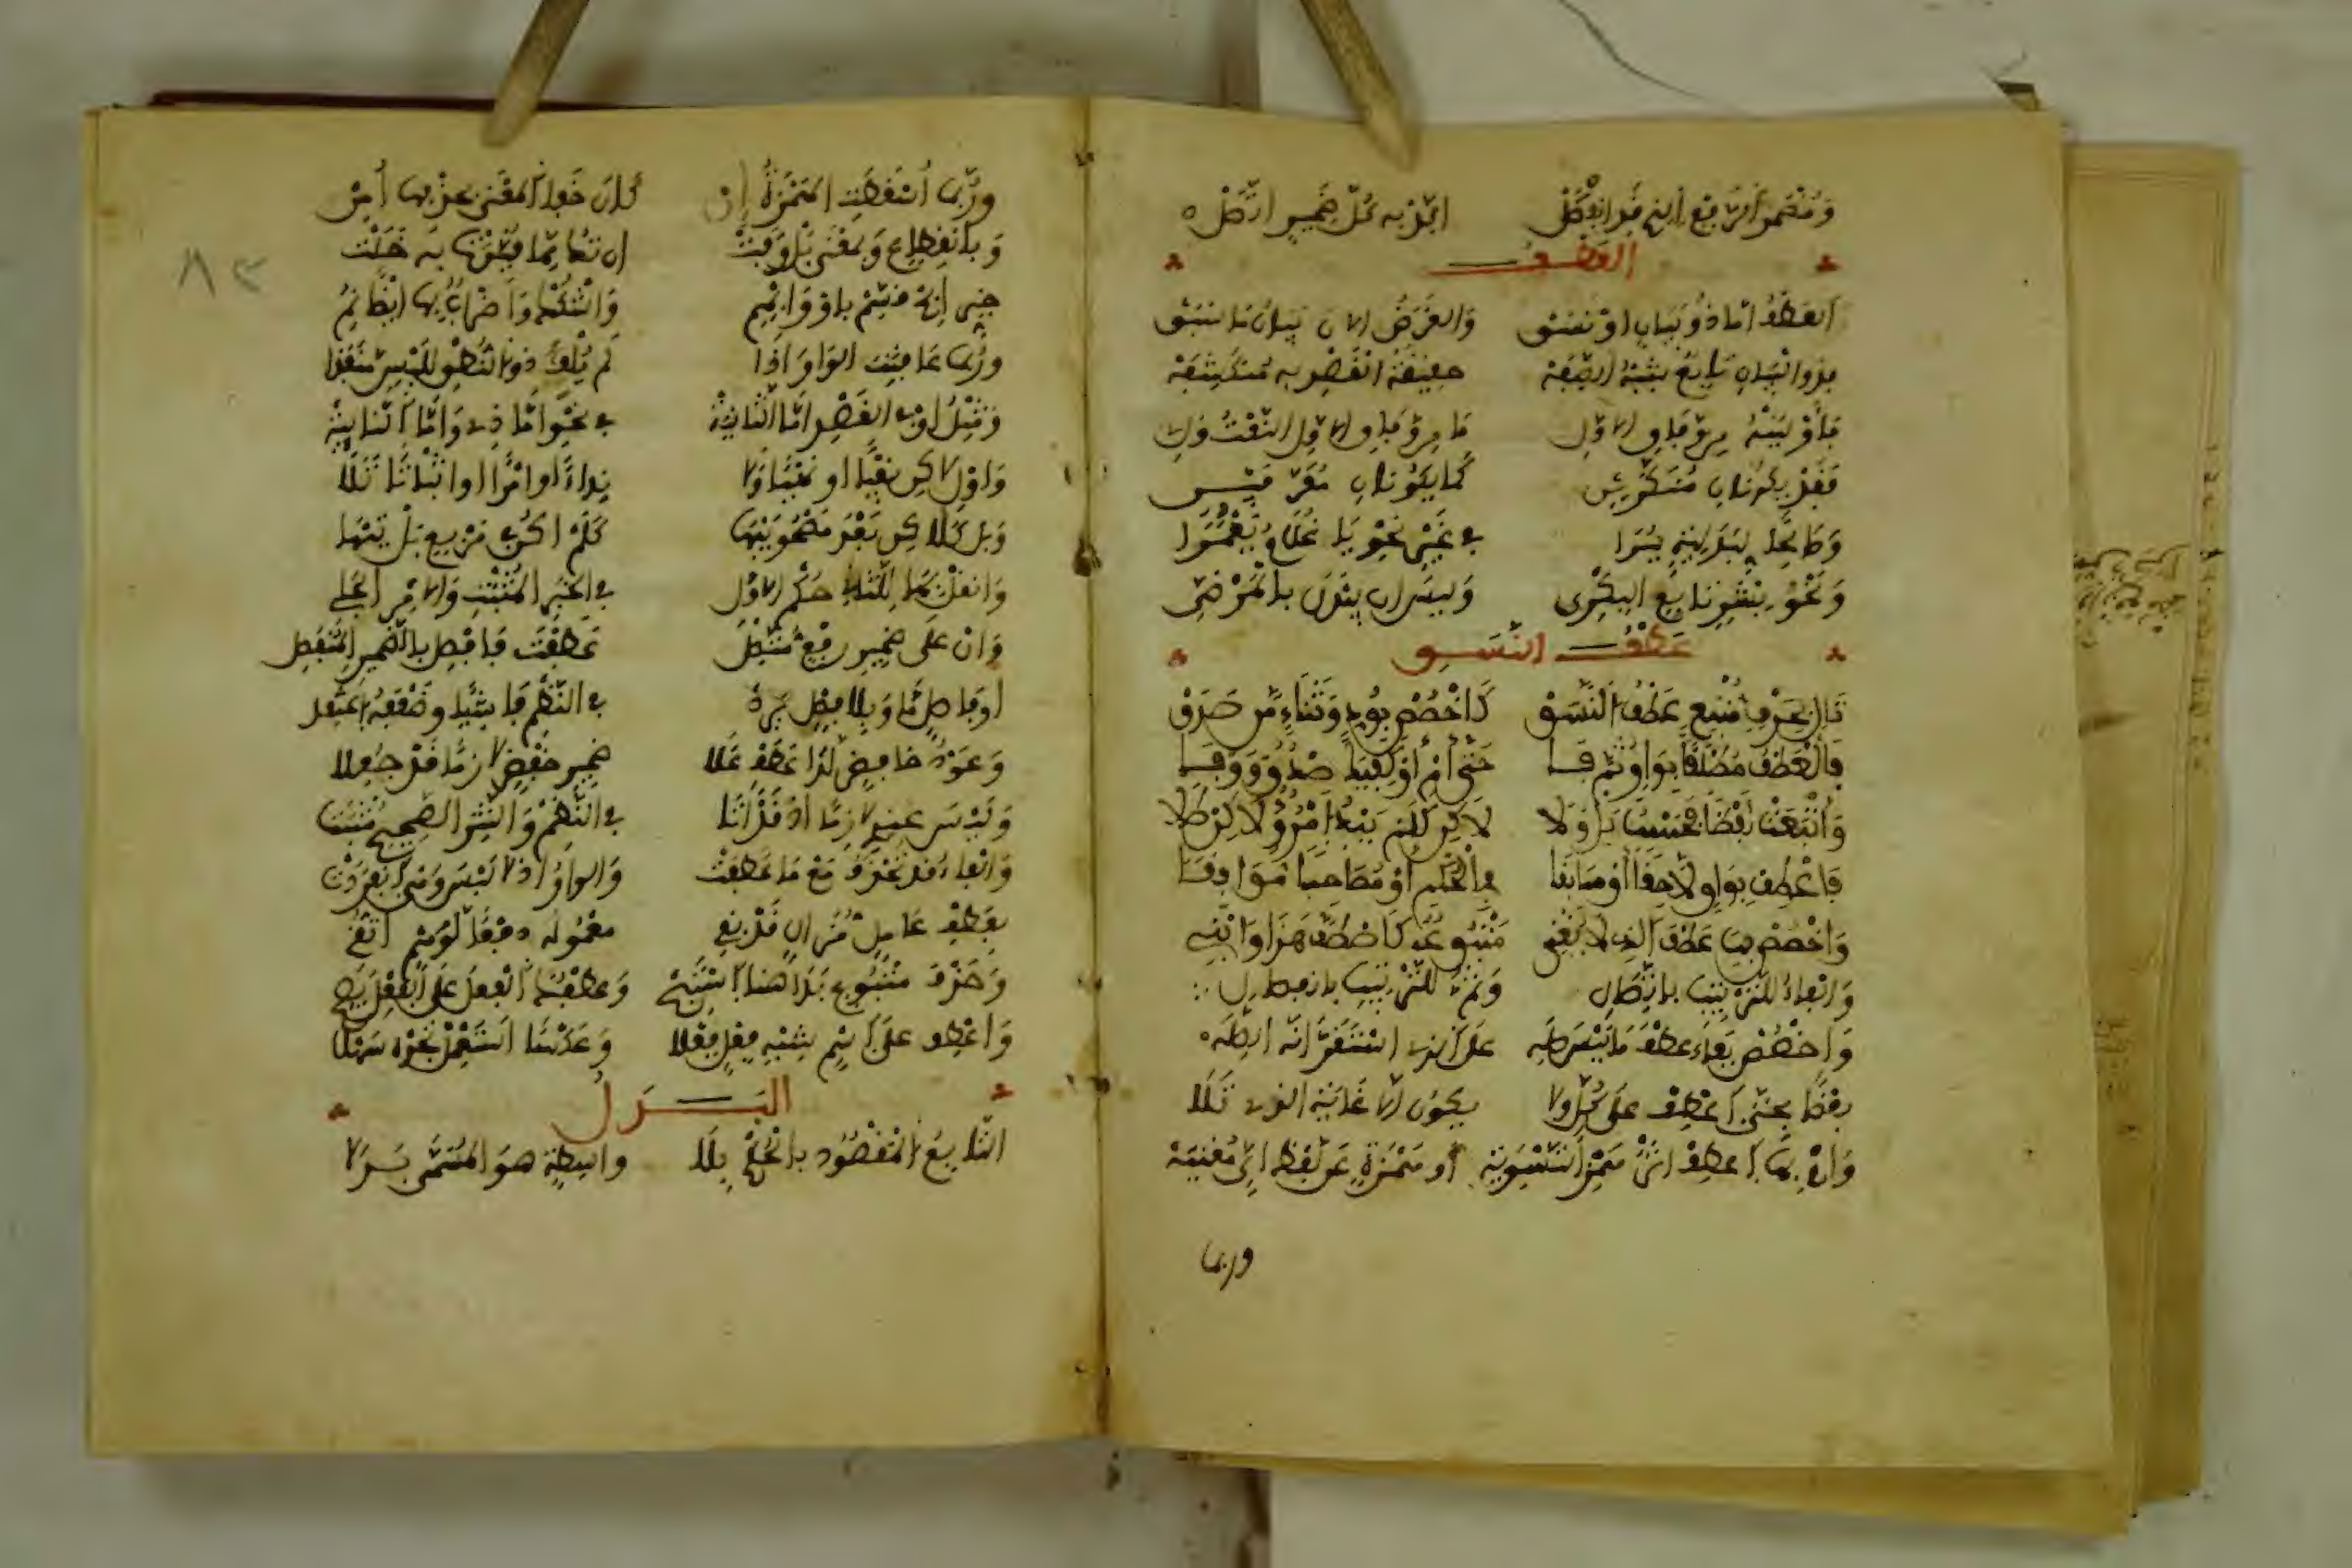 وَمُضْمَرَ الرَّفْعِ الذِي قَدِ انْفَصَلْ اكِّدْ بِهِ كُلَّ ضَمِيرٍ اتَّصَلْ
العَطْفُ
العَطْفُ امَّا ذُو بَيَانٍ اوْ نَسَقْ وَالغَرَضُ الانَ بَيَانُ مَا سَبَقْ
فذو البَيَانِ تَابِعٌ شِبْهُ الصِّفَهْ حقِيقَةُ القَصْدِ بِهِ مُنْكَشِفَهْ
فَأَوْلِيَنْهُ مِنْ وِفَاقِ الاوَّلِ مَا مِنْ وِفَاقِ الاوَّلِ النَّعْتُ وَلِي
فَقَدْ يكُونَانِ مُنَكَّرَيْنِ كَمَا يَكُونَانِ مُعَرَّفَيْنِ
وَصَالِحًا لِبَدَلِيَّةٍ يُرَا فِي غَيْرِ نَحْوِ يَا غُلَامُ يَعْمُرَا
وَنَحْوِ بِشْرٍ تَابِعِ البَكْرِي وَلَيْسَ ان يُبْدَلَ بالْمَرْضِيِّ
عَطْفُ النَّسَقِ
تَالٍ بِحَرْفٍ مُتْبِعٍ عَطْفُ النَّسَقْ كَاخْصُصْ بِوُدٍّ وَثَنَاءٍ مَن صَدَقْ
فَالْعَطْفُ مُطْلَقًا بِوَاوٍ ثُمَّ فَا حَتَّى أمْ أَوْ كَفِيكَ صِدْقٌ وَوَفَا
وَأَتْبَعَتْ لَفْظًا فَحَسْبُ بَلْ وَلَا لَاكِن كَلَمْ يَبْدُ امْرُؤٌ لَاكِنْ طَلَا
فَاعْطِفْ بِوَاوٍ لَاحِقًا أَوْ سَابِقَا فِي الْحُكْمِ أَوْ مُصَاحِبًا مُوَافِقَا
وَاخْصُصْ بِهَا عَطْفَ الذِي لَا يُغْنِي مَتْبُوعُهُ كَاصْطَفَّ هَذَا وَابْنِي
وَالفَاءُ لِلتَّرْتِيبِ بِاتِّصَالِ وَثُمَّ لِلتَّرْتِيبِ بانفِصَالِ
وَاخْصُصْ بِفَاءٍ عَطْفَ مَا لَيْسَ صِلَهْ عَلَى الذِي اسْتَقَرَّ انَّهُ الصِّلَهْ
بَعْضًا بِحَتَّى اعْطِفْ عَلَى كُلٍّ وَلَا يكُونُ الاَّ غَايَةَ الذِي تَلَا
وَامْ بِهَا اعْطِفْ اثْرَ هَمْزِ التَّسْوِيَهْ أو هَمْزَةٍ عَن لَفْظِ ايٍّ مُغْنِيَهْ
وربما
وَرُبَّمَا أُسْقِطَتِ الهَمْزَةُ إِن كَانَ خَفَا المَعْنَى بحَذْفِهَا أُمِنْ
وَبِانْقِطَاعٍ وَبِمَعْنَى بَلْ وَفَتْ ان تَكُ مِمَّا قُيِّدَتْ بِهِ خَلَتْ
خَيِّرْ ابِحْ قَسِّمْ بِأوْ وَابْهِمِ وَاشْكُكْ وَاضْرَابٌ بِهَا ايْضًا نُمِي
وَرُبَّمَا عَاقَبَتِ الوَاوَ اذَا لَمْ يُلْفِ ذو النُّطْقِ لِلَبْسٍ مَنْفَذَا
وَمِثْلُ اوْ في القَصْدِ امَّا الثَّانِيَهْ في نَحْوِ امَّا ذِي وَامَّا النَّائِيَهْ
وَاوْلِ لاكِن نَفْيًا او نَهْيًا وَلَا نِدَاءً اوَ امْرًا اوِ اثْبَاتًا تَلَا
وَبَلْ كَلَاكِن بَعْدَ مَصْحُوبَيْهَا كَلَمْ اكُن في مَرْبَعٍ بَلْ تَيْهَا
وَانْقُلْ بِهَا لِلثَّانِ حُكْمَ الاوَّلِ في الخَبَرِ المُثْبَتِ وَالامْرِ الجَلِي
وَانْ عَلَى ضَمِيرِ رَفْعٍ مُتَّصِلْ عَطَفْتَ فَافْصِلْ بِالضَّمِيرِ المُنْفَصِلْ
اوْ فَاصِلٍ مَّا وَبِلَا فَصْلٍ يَرِدْ في النَّظْمِ فَاشِيًا وَضُعْفَهُ اعْتَقِدْ
وَعَوْدُ خَافِضٍ لَدَا عَطْفٍ عَلَى ضَمِيرِ خَفْضٍ لَازِمًا قَدْ جُعِلَا
وَلَيْسَ عِنْدِي لَازِمًا اذْ قَدْ أَتَا في النَّظْمِ وَالنَّثْرِ الصَّحِيحِ مُثْبَتَا
وَالفَاءُ قَدْ تُحْذَفُ مَعْ مَا عَطَفَتْ وَالوَاوُ اذ لَا لَبْسَ وَهْيَ انْفَرَدَتْ
بِعَطْفِ عَامِلٍ مُزَالٍ قَدْ بَقِي مَعْمُولُهُ دَفْعًا لِوَهْمٍ اتُّقِي
وَحَذْفَ مَتْبُوعٍ بَدَا هُنَا اسْتَبِحْ وَعَطْفُكَ الفِعْلَ عَلَى الفِعْلِ يَصِحْ
وَاعْطِفْ عَلَى اسْمٍ شِبْهِ فِعْلٍ فِعْلَا وَعَكْسًا اسْتَعْمِلْ تَجِدْهُ سَهْلَا
البَدَلُ
التَّابِعُ المَقْصُودُ بِالْحُكْمِ بِلَا وَاسِطَةٍ هُوَ المُسَمَّى بَدَلَا